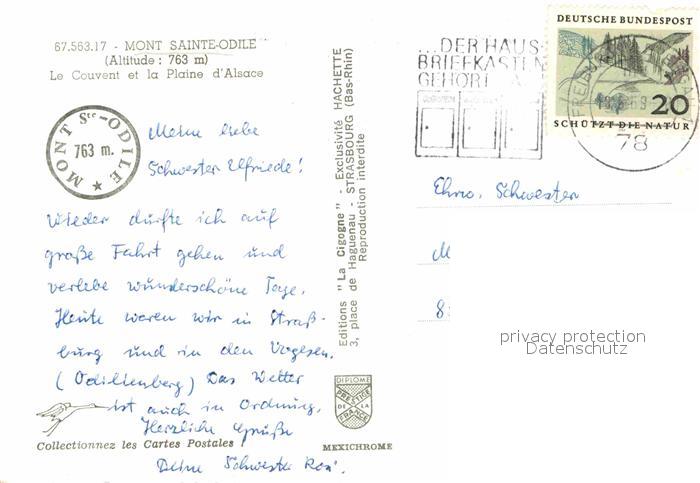 67.563.17 - MONT SAINTE-ODILE
(Altitude : 763 m)
Le Couvent et la Plaine d'Alsace
MONT Ste-ODILE
763 m.
Meine liebe
Schwester Elfriede!
Wieder durfte ich auf
große Fahrt gehen und
verlebe wunderschöne Tage.
Heute waren wir in Straß-
burg und in den Vogesen.
(Odilienberg) Das Wetter
ist auch in Ordnung.
Herzliche Grüße
Deine Schwester
Collectionnez les Cartes Postales
Editions "La Cigogne" - Exclusivité HACHETTE
3, place de Haguenau - STRASBOURG (Bas-Rhin)
Reproduction interdite
DIPLOME
PRESTIGE
DE LA
FRANCE
MEXICHROME
...DER HAUS-
BRIEFKASTEN
GEHÖRT
DEUTSCHE BUNDESPOST
20
SCHÜTZT DIE NATUR
78
Ehrw. Schwester
M
8
privacy protection
Datenschutz